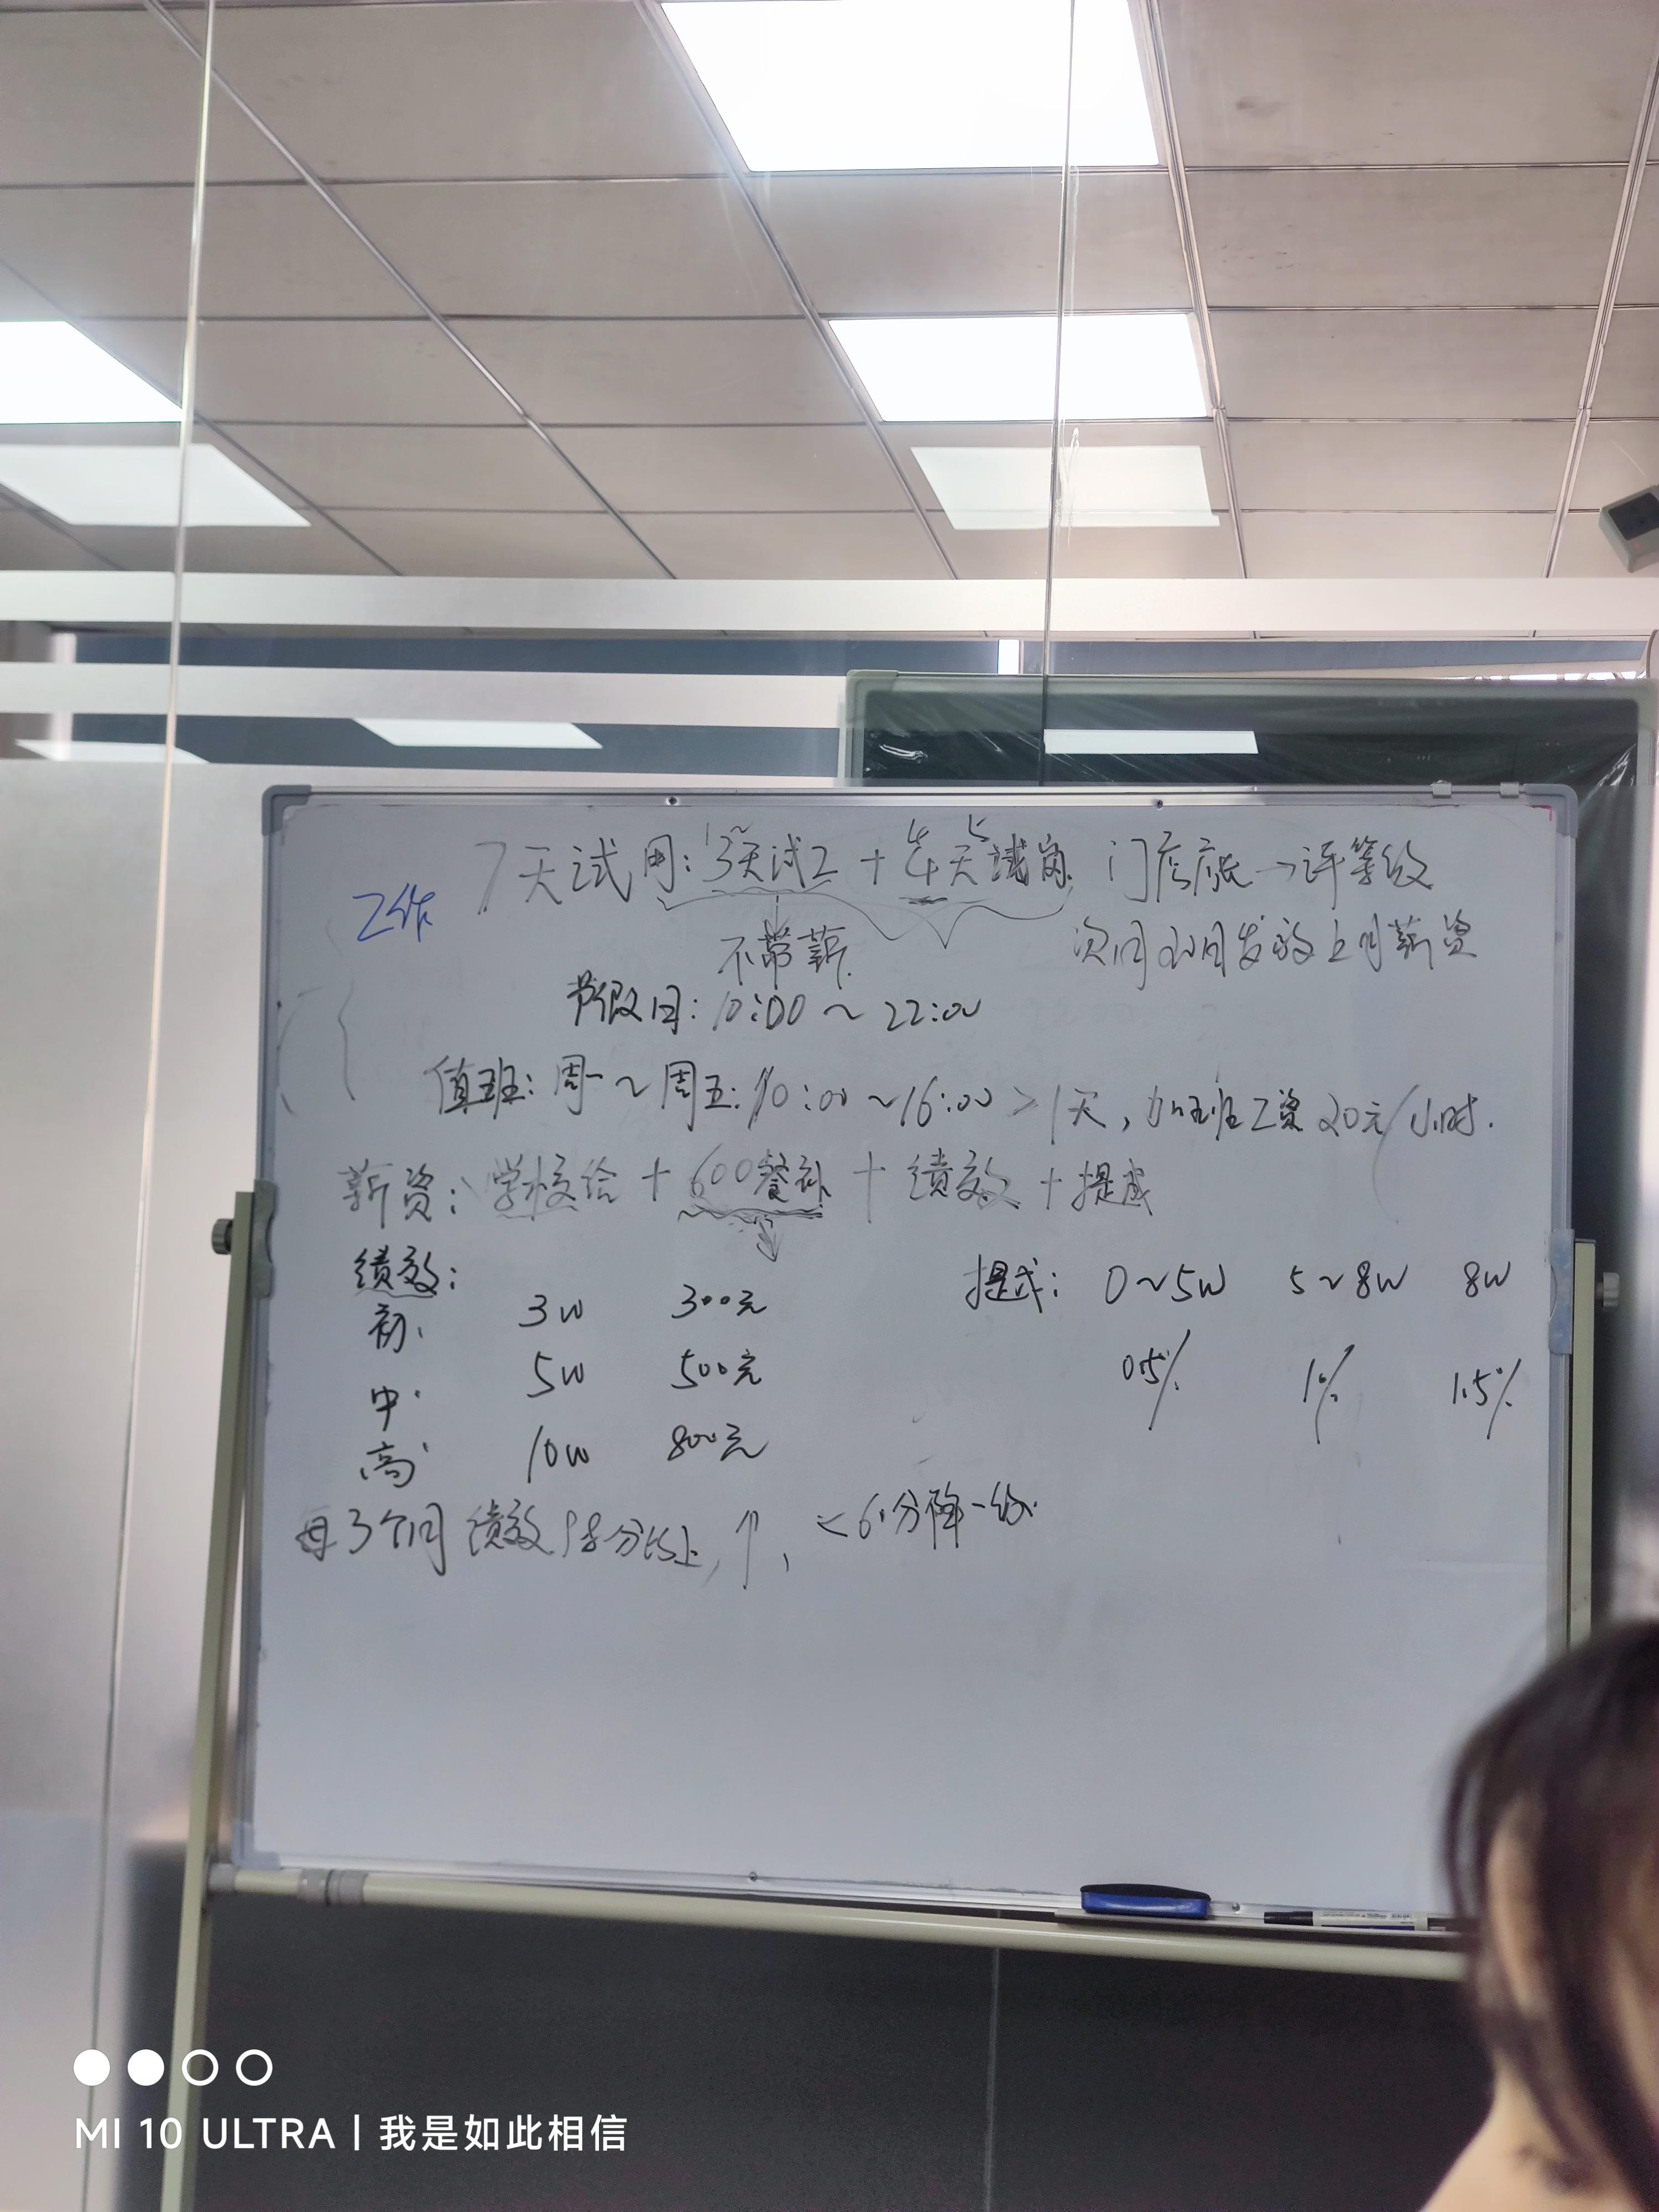 7天试用：3天试工 + 4天试岗 门店店长→评等级
工作
不带薪 次月 发放上月薪资
节假日：10:00～22:00
值班：周一～周五：10:00～16:00 > 1天，加班工资20元/小时.
薪资：学校给 + 600餐补 + 绩效 + 提成
绩效： 提成： 0～5W 5～8W 8W
初. 3W 300元
0.5% 1% 1.5%
中. 5W 500元
高 10W 800元
每3个月 绩效 分以上，↑， <60分降一级.
MI 10 ULTRA | 我是如此相信